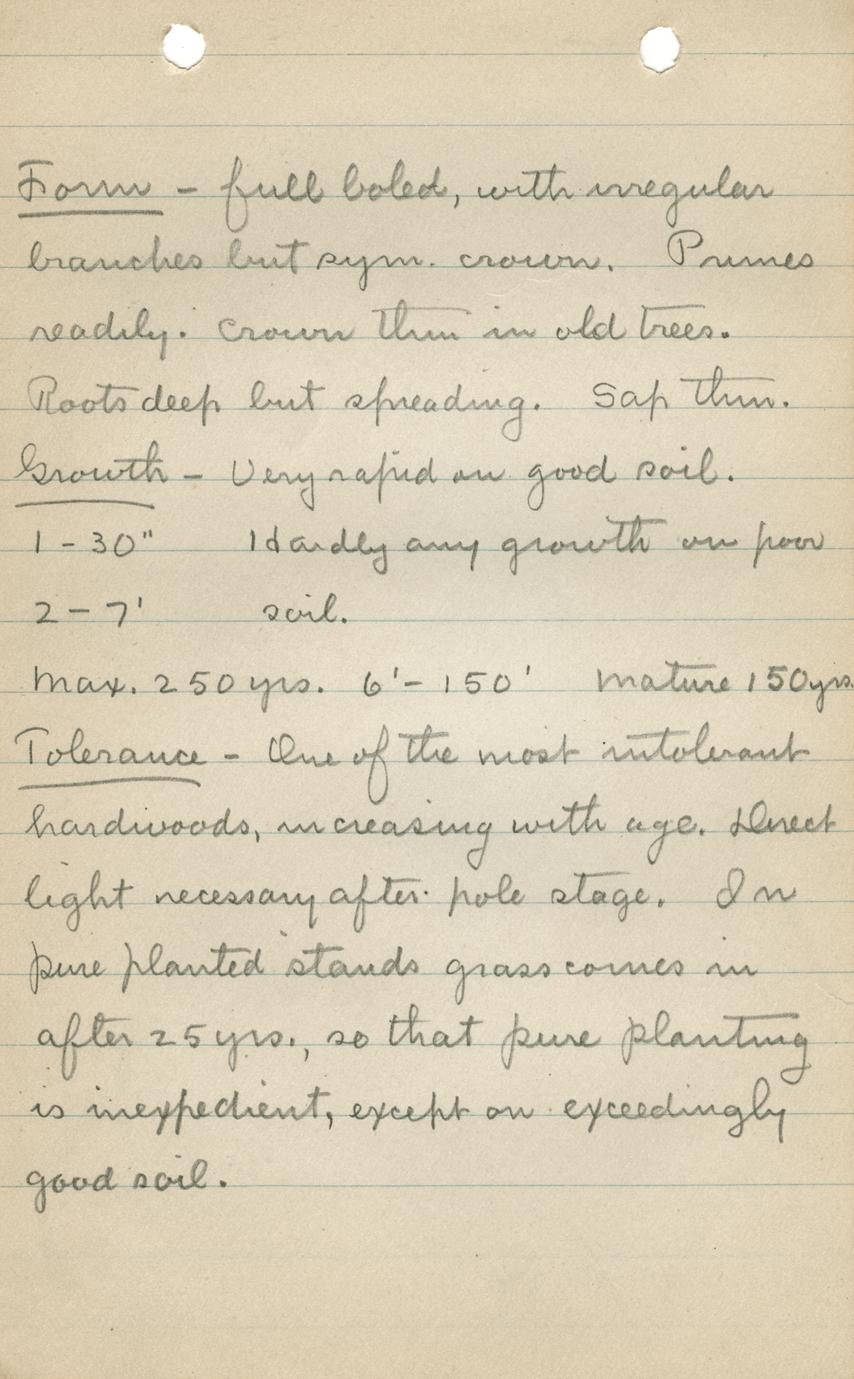 Form - full boled, with irregular
branches but sym. crown. Prunes
readily. Crown thin in old trees.
Roots deep but spreading. Sap thin.
Growth - Very rapid on good soil.
1 - 30" Hardly any growth on poor
2 - 7' soil.
Max. 250 yrs. 6' - 150' Mature 150 yrs.
Tolerance - One of the most intolerant
hardwoods, increasing with age. Direct
light necessary after pole stage. In
pure planted stands grass comes in
after 25 yrs., so that pure planting
is inexpedient, except on exceedingly
good soil.